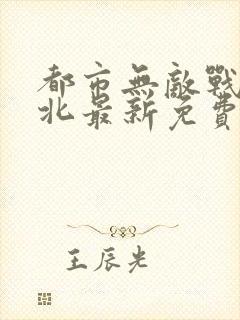 都市無敵戰
北最新免費
王辰光